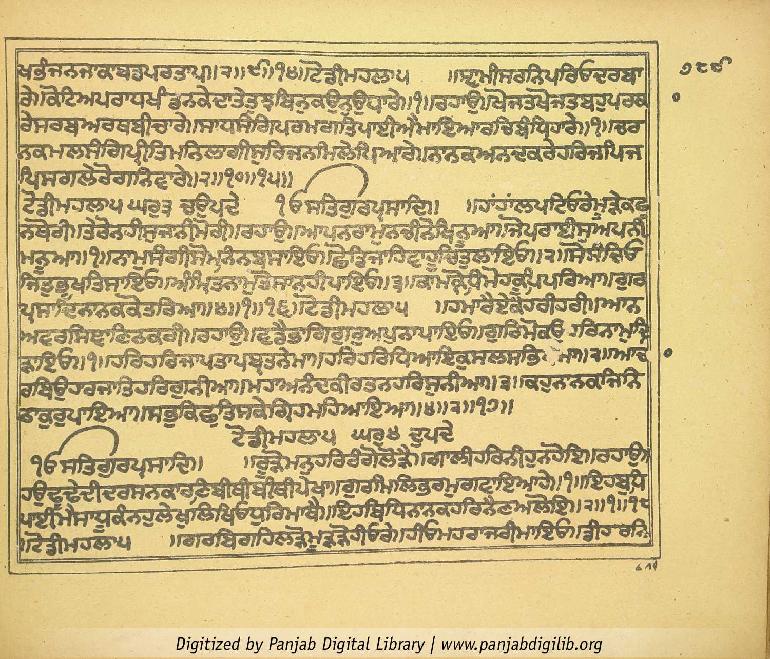 ਖਭੰਜਨਜਾਕਾਬਡਪਰਤਾਪ॥੨॥੯॥੧੪॥ਟੋਡੀਮਹਲਾ੫ ॥ਸ੍ਵਾਮੀਸਰਨਿਪਰਿਓਦਰਬਾ
ਰੇ॥ਕੋਟਿਅਪਰਾਧਖੰਡਨਕੇਦਾਤੇਤੁਝਬਿਨੁਕਉਨੁਉਧਾਰੇ॥੧॥ਰਹਾਉ॥ਖੋਜਤਖੋਜਤਬਹੁਪਰਕਾ
ਰੇਸਰਬਅਰਥਬੀਚਾਰੇ॥ਸਾਧਸੰਗਿਪਰਮਗਤਿਪਾਈਐਮਾਇਆਰਚਿਬੰਧਿਹਾਰੇ॥੧॥ਚਰ
ਨਕਮਲਸੰਗਿਪ੍ਰੀਤਿਮਨਿਲਾਗੀਸੁਰਿਜਨਮਿਲੇਪਿਆਰੇ॥ਨਾਨਕਅਨਦਕਰੇਹਰਿਜਪਿਜ
ਪਿਸਗਲੇਰੋਗਨਿਵਾਰੇ॥੨॥੧੦॥੧੫॥
ਟੋਡੀਮਹਲਾ੫ ਘਰੁ੩ ਚਉਪਦੇ ੴਸਤਿਗੁਰਪ੍ਰਸਾਦਿ॥ ॥ਹਾਂਹਾਂਲਪਟਿਓਰੇਮੂੜ੍ਹੇਕਛੂ
ਨਥੋਰੀ॥ਤੇਰੋਨਹੀਸੁਜਾਨੀਮੋਰੀ॥ਰਹਾਉ॥ਆਪਨਰਾਮੁਨਚੀਨੋਖਿਨੂਆ॥ਜੋਪਰਾਈਸੁਅਪਨੀ
ਮਨੂਆ॥੧॥ਨਾਮੁਸੰਗੀਸੋਮਨਿਨਬਸਾਇਓ॥ਛੋਡਿਜਾਹਿਵਾਹੂਚਿਤੁਲਾਇਓ॥੨॥ਸੋਸੰਚਿਓ
ਜਿਤੁਭੂਖਤਿਸਾਇਓ॥ਅੰਮ੍ਰਿਤਨਾਮੁਤੋਸਾਨਹੀਪਾਇਓ॥੩॥ਕਾਮਕ੍ਰੋਧਿਮੋਹਕੂਪਿਪਰਿਆ॥ਗੁਰ
ਪ੍ਰਸਾਦਿਨਾਨਕਕੋਤਰਿਆ॥੪॥੧॥੧੬॥ਟੋਡੀਮਹਲਾ੫ ॥ਹਮਾਰੈਏਕੈਹਰੀਹਰੀ॥ਆਨ
ਅਵਰਸਿਞਾਣਿਨਕਰੀ॥ਰਹਾਉ॥ਵਡੈਭਾਗਿਗੁਰੁਅਪੁਨਾਪਾਇਓ॥ਗੁਰਿਮੋਕਉਹਰਿਨਾਮੁਦ੍ਰਿ
ੜਾਇਓ॥੧॥ਹਰਿਹਰਿਜਾਪਤਾਪਬ੍ਰਤਨੇਮਾ॥ਹਰਿਹਰਿਧਿਆਇਕੁਸਲਸਭਿ ਮਾ॥੨॥ਆਚਾ
ਰਬਿਉਹਾਰਜਾਤਿਹਰਿਗੁਨੀਆ॥ਮਹਾਅਨੰਦਕੀਰਤਨਹਰਿਸੁਨੀਆ॥੩॥ਕਹੁਨਾਨਕਜਿਨਿ
ਠਾਕੁਰੁਪਾਇਆ॥ਸਭੁਕਿਛੁਤਿਸਕੇਗ੍ਰਿਹਮਹਿਆਇਆ॥੪॥੨॥੧੭॥
ਟੋਡੀਮਹਲਾ੫ ਘਰੁ੪ ਦੁਪਦੇ
ੴਸਤਿਗੁਰਪ੍ਰਸਾਦਿ॥ ॥ਰੂੜੋਮਨੁਹਰਿਰੰਗੋਲੋੜੈ॥ਗਾਲੀਹਰਿਨੀਹੁਨਹੋਇ॥ਰਹਾਉ॥
ਹਉਢੂਢੇਦੀਦਰਸਨਕਾਰਣਿਬੀਥੀਬੀਥੀਪੇਖਾ॥ਗੁਰਮਿਲਿਭਰਮੁਗਵਾਇਆਹੇ॥੧॥ਇਹਬੁਧਿ
ਪਾਈਮੈਸਾਧੂਕੰਨਹੁਲੇਖੁਲਿਖਿਓਧੁਰਿਮਾਥੈ॥ਇਹਬਿਧਿਨਾਨਕਹਰਿਨੈਣਅਲੋਇ॥੨॥੧॥੧੮
॥ਟੋਡੀਮਹਲਾ੫ ॥ਗਰਬਿਗਹਿਲੜੋਮੂੜੜੋਹੀਓਰੇ॥ਹੀਓਮਹਰਾਜਰੀਮਾਇਓ॥ਡੀਹਰਨਿ
Digitized by Panjab Digital Library | www.panjabdigilib.org